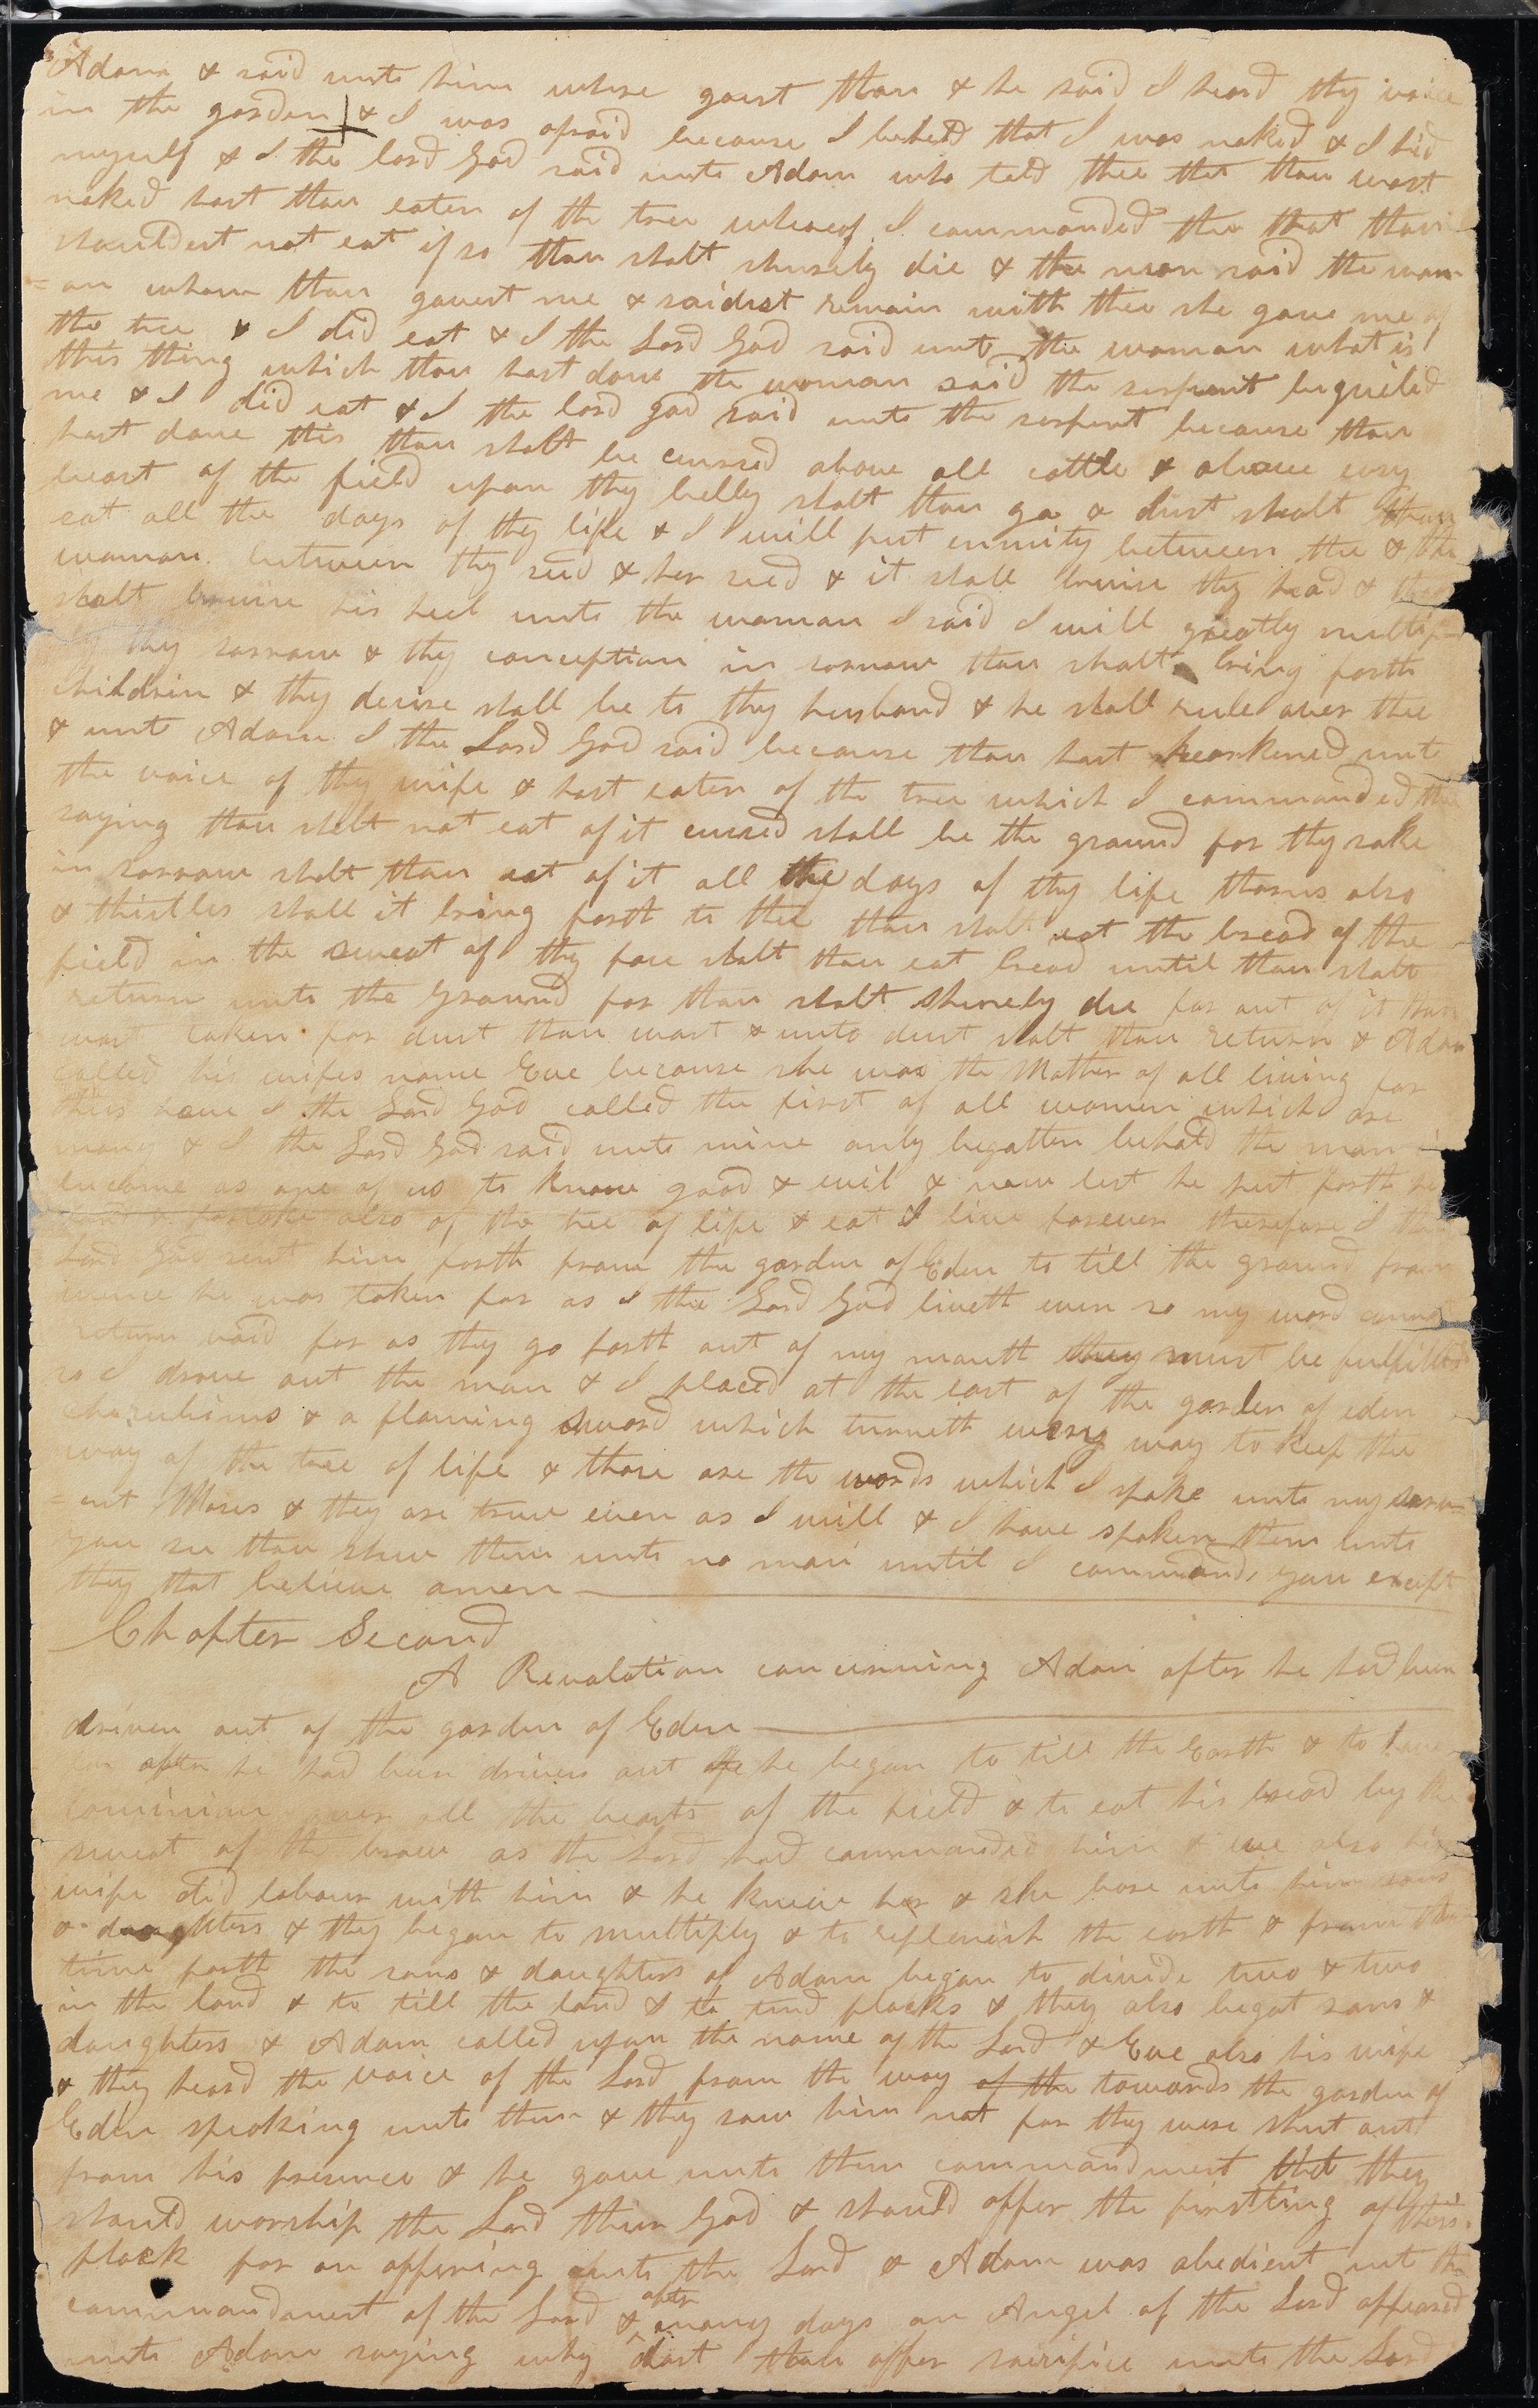 Adam & said unto him where goest thou & he said I heard thy voice
in the garden & I was afraid because I beheld that I was naked & I hid
myself & I the lord God said unto Adam who told thee that thou wast
naked hast thou eaten of the tree whereof I commanded thee that thou
shouldest not eat if so thou shalt shurely die & the man said the wom
=an whom thou gavest me & saidest remain with thee she gave me of
the tree & I did eat & I the Lord God said unto the woman what is
this thing which thou hast done the woman said the serpent beguiled
me & I did eat & I the lord god said unto the serpent because thou
hast done this thou shalt be cursed above all cattle & above evry
beast of the field upon thy belly shalt thou go & dust shalt thou
eat all the days of thy life & I will put enmity between thee & the
woman between thy seed & her seed & it shall bruise thy head & thou
shalt bruise his heel unto the woman I said I will greatly multip
thy sorrow & thy conception in sorrow thou shalt bring forth
childrin & thy desire shall be to thy husband & he shall rule over thee
& unto Adam I the Lord God said because thou hast hearkened unto
the voice of thy wife & hast eaten of the tree which I commanded thee
saying thou shalt not eat of it cursed shall be the ground for thy sake
in sorrow shalt thou eat of it all the days of thy life thorns also
& thistles shall it bring forth to thee thou shalt eat the bread of the
field in the sweat of thy face shalt thou eat bread until thou shalt
return unto the ground for thou shalt shurely die for out of it thou
wast taken for dust thou wast & unto dust shalt thou return & Adam
called his wifes name Eve because she was the Mother of all living for
thus have I the Lord God called the first of all women which are
many & I the Lord God said unto mine only begotten behold the man is
become as one of us to know good & evil & now lest he put forth his
hand & partake also of the tree of life & eat & live forever therefore I the
Lord God sent him forth from the garden of Eden to till the ground from
whence he was taken for as I the Lord God liveth even so my word cannot
return void for as they go forth out of my mouth they must be fulfilled
so I drove out the man & I placed at the east of the garden of eden
cherubims & a flaming sword which turneth every way to keep the
way of the tree of life & those are the words which I spake unto my serv=
=ent Moses & they are true even as I will & I have spoken them unto
you see thou shew them unto no man until I command you except
they that believe amen
Chapter Second
A Revalation concerning Adam after he had been
driven out of the garden of Eden
after he had been driven out he began to till the Earth & to have
dominion over all the beasts of the field & to eat his bread by the
sweat of the brow as the Lord had commanded him & eve also his
wife did labour with him & he knew her & she bore unto him sons
& daughters & they began to multiply & to replenish the earth & from that
time forth the sons & daughters of Adam began to divide two & two
in the land & to till the land & to tend flocks & they also begat sons &
daughters & Adam called upon the name of the Lord & Eve also his wife
& they heard the voice of the Lord from the way of the towards the garden of
Eden speaking unto them & they saw him not for they were shut out
from his presence & he gave unto them commandment that they
should worship the Lord their God & should offer the firstling of their
flock for an offering unto the Lord & Adam was obedient unt the
commandment of the Lord & after many days an Angel of the Lord appeared
unto Adam saying why dost thou offer sacrifice unto the Lord